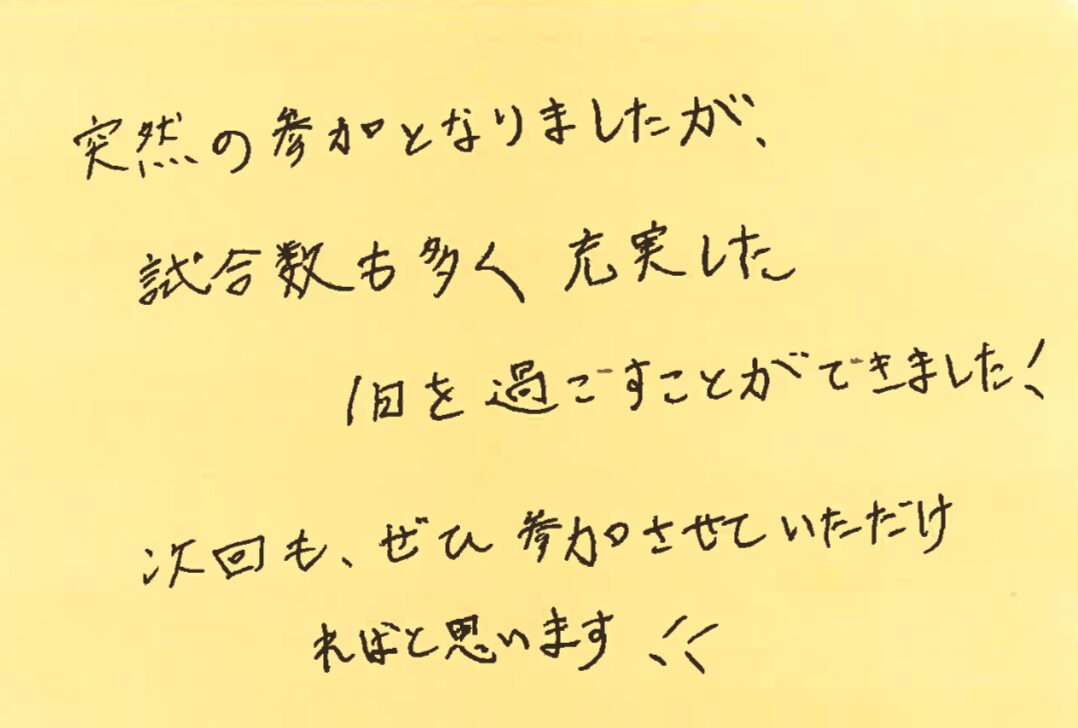 突然の参加となりましたが、
試合数も多く 充実した
1日を過ごすことができました!
次回も、ぜひ参加させていただけ
ればと思います!!